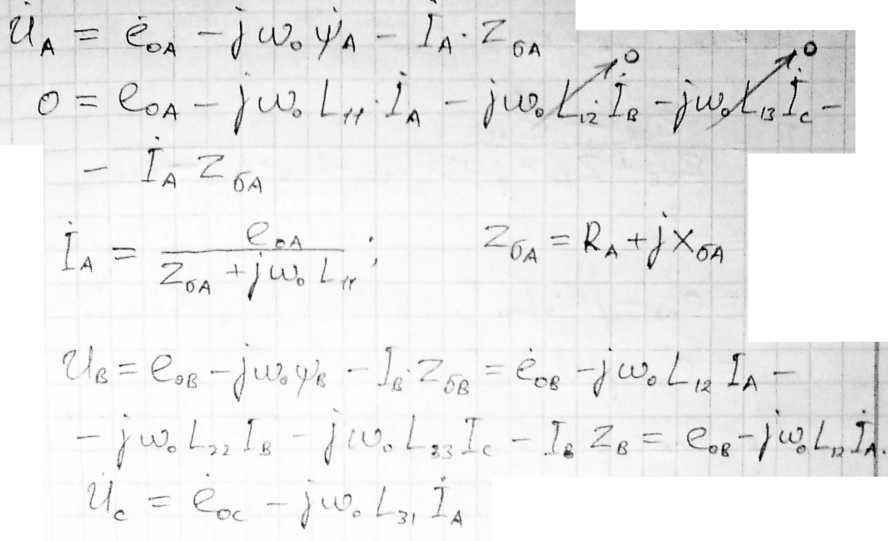 U̇_A = ė_0A − jω₀ψ̇_A − İ_A · Z_бA
0 = e_0A − jω₀ L₁₁ · İ_A − jω₀ L₁₂ · İ_B →0 − jω₀ L₁₃ İ_C →0 −
− İ_A Z_бA
İ_A = e_0A / (Z_бA + jω₀ L₁₁) ; Z_бA = R_A + jX_бA
U_B = e_0B − jω₀ψ_B − I_B · Z_бB = ė_0B − jω₀ L₁₂ I_A −
− jω₀ L₂₂ I_B − jω₀ L₃₃ I_C − I_B Z_B = e_0B − jω₀ L₁₂ İ_A.
U̇_C = ė_0C − jω₀ L₃₁ İ_A